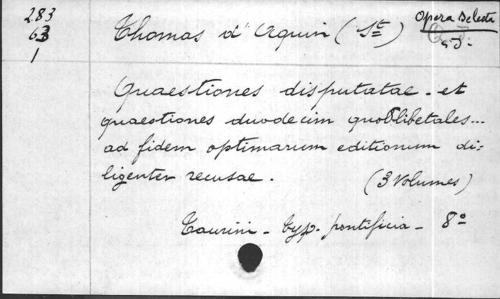 283
63
1
Thomas d'Aquin (St)
Opera Selecta
5.
Quaestiones disputatae - et
quaestiones duodecim quodlibetales...
ad fidem optimarum editionum di-
ligenter recusae.
(3 Volumes)
Taurini - typ. pontificia - 8°